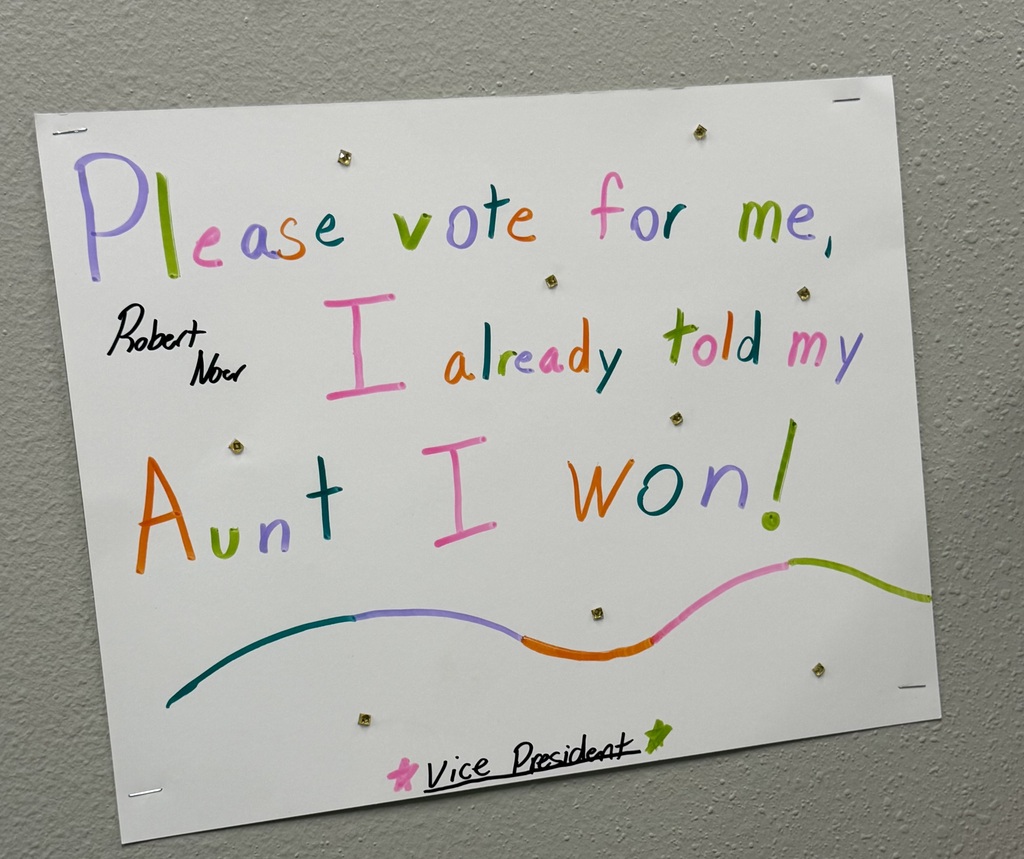 Please vote for me,
Robert
Noer
I already told my
Aunt I won!
Vice President